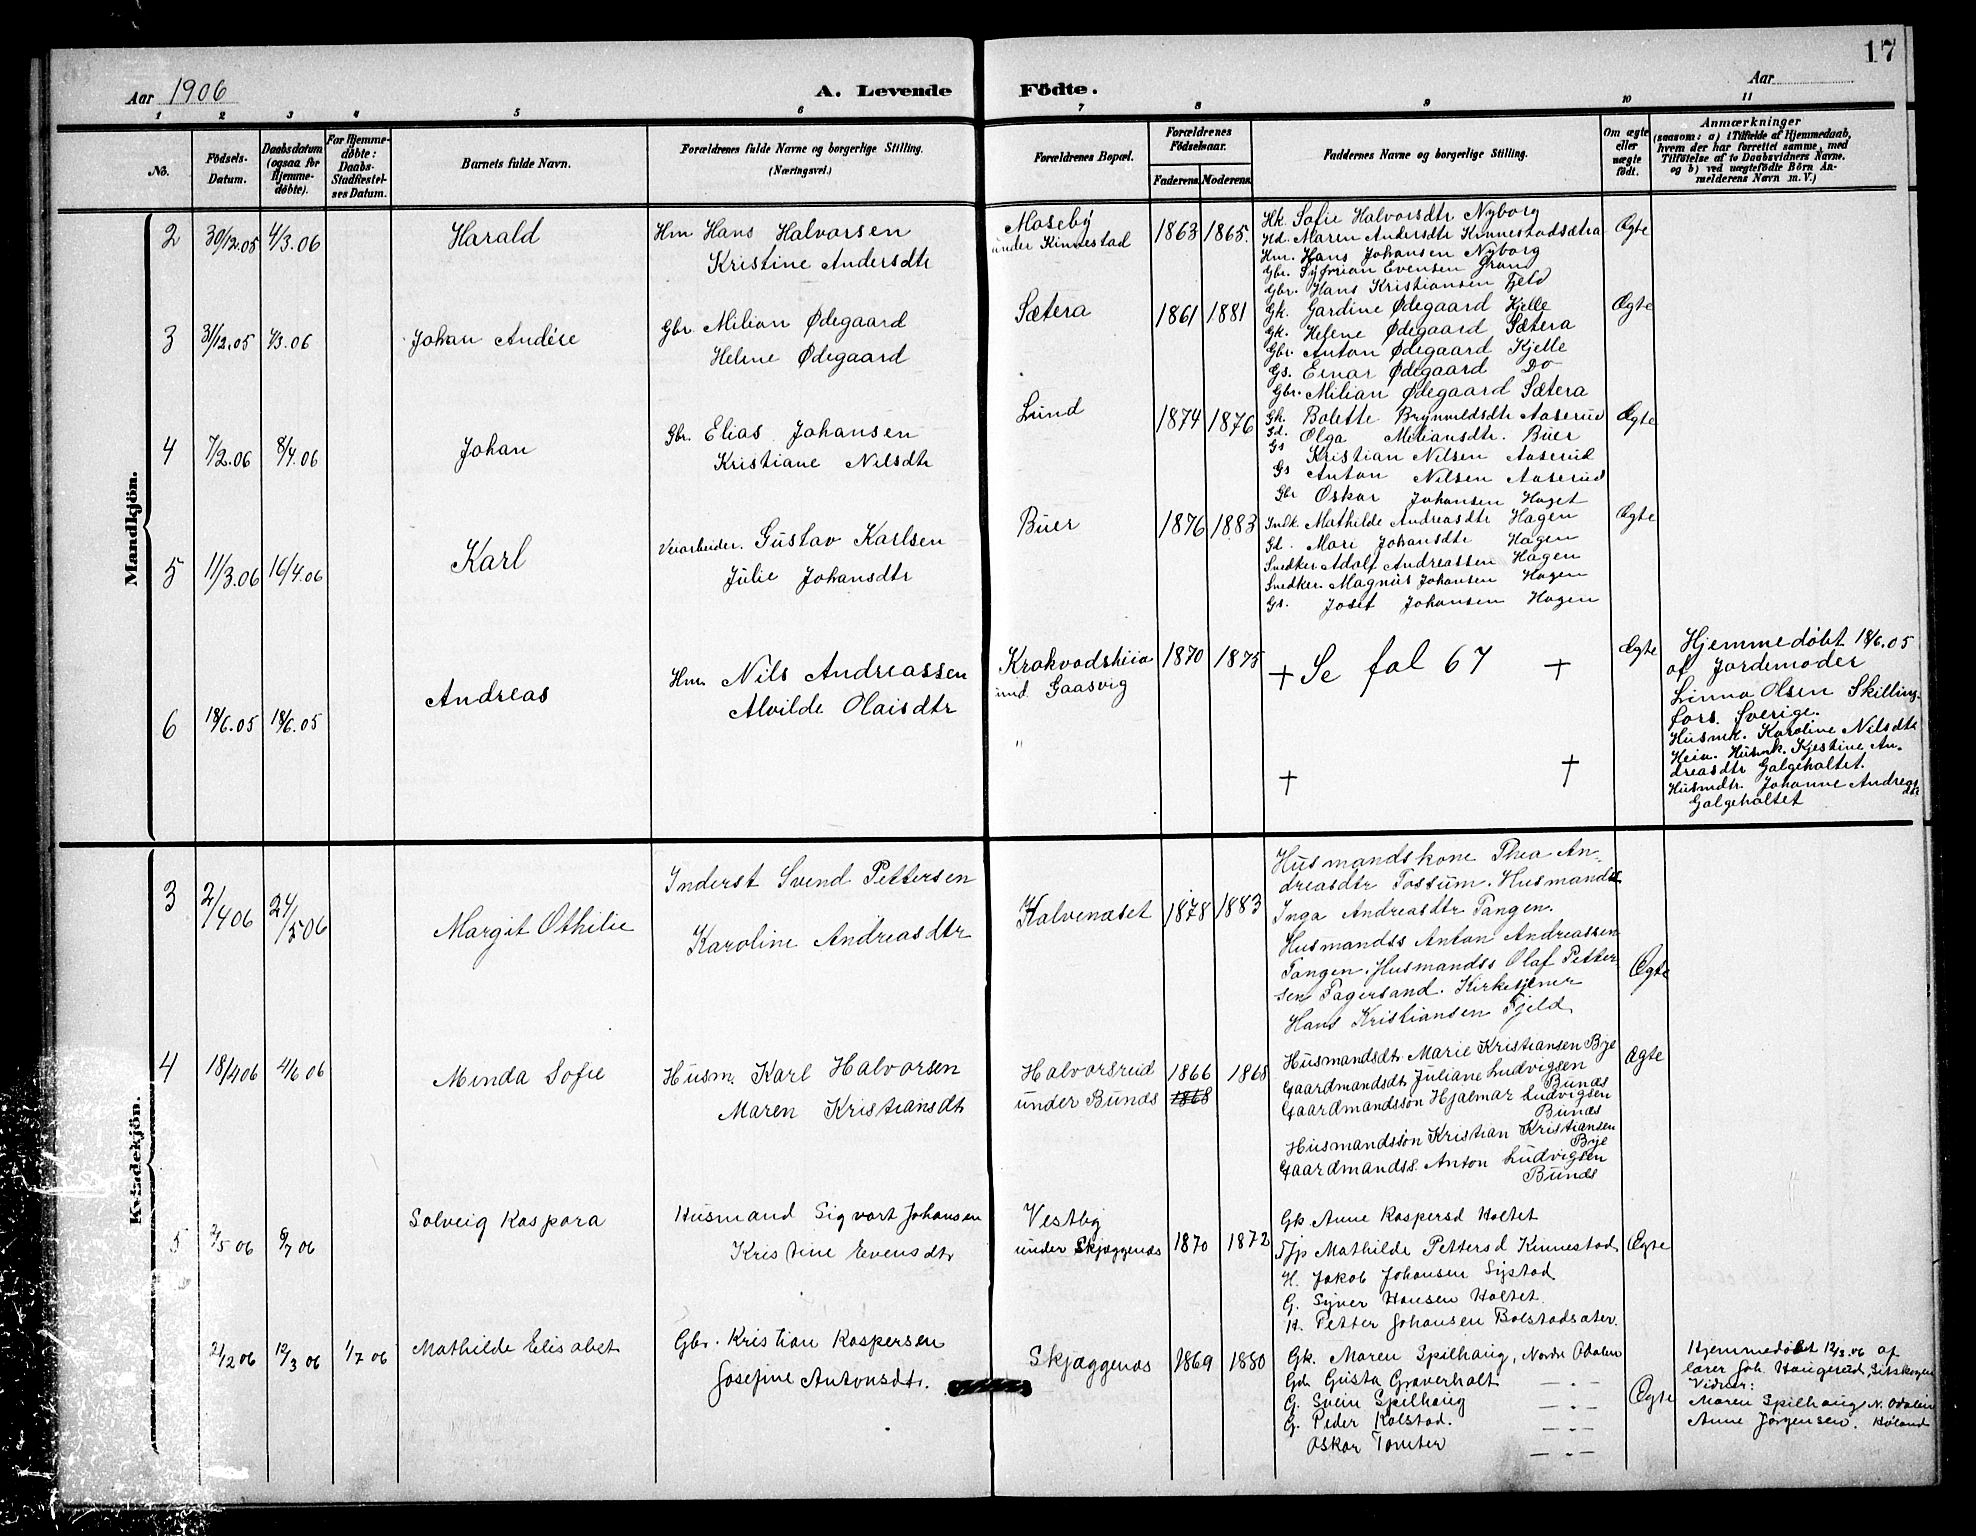 17
Aar 1906 A. Levende Födte. Aar
1 2 3 4 5 6 7 8 9 10 11
No.
Födsels-Datum.
Daabsdatum (ogsaa for Hjemmedøbte).
For Hjemmedøbte: Daabs-Stadfæstelses Datum.
Barnets fulde Navn.
Forældrenes fulde Navne og borgerlige Stilling. (Næringsvei.)
Forældrenes Bopæl.
Forældrenes Födselsaar.
Faderens. Moderens.
Faddernes Navne og borgerlige Stilling.
Om ægte eller uægte födt.
Anmærkninger
(saasom: a) i Tilfælde af Hjemmedaab,
hvem der har forrettet samme, med
Tilføielse af to Daabsvidners Navne.
og b) ved uægtefödte Börn An-
melderens Navn m. V.)
Mandkjön.
2 30/12.05 4/3.06 Harald
Hm Hans Halvorsen
Kristine Andersdtr
Moseby
under Kinnestad
1863 1865.
Hk. Sofie Halvorsdtr Nyborg
Hd. Maren Andersdtr Kinnestadsætra
Hm. Hans Johansen Nyborg
Gbr. Syfrian Evensen Grand
Gbr. Hans Kristiansen Fjeld
Ægte
3 31/12.05 4/3.06 Johan Andére
Gbr Milian Ødegaard
Helene Ødegaard
Sætera
1861 1881
Gk. Gardine Ødegaard Kjelle
Gk. Helene Ødegaard Sætera
Gbr. Anton Ødegaard Kjelle
Gs. Einar Ødegaard Do
Gbr. Milian Ødegaard Sætera
Ægte
4 7/2.06 8/4.06 Johan
Gbr. Elias Johansen
Kristiane Nilsdtr
Lund
1874 1876
Gk. Bolette Brynnildsdtr Aaserud
Gd. Olga Miliansdtr. Buer
Gs Kristian Nilsen Aaserud
Gs Anton Nilsen Aaserud
Gbr Oskar Johansen Haget
Ægte
5 11/3.06 16/4.06 Karl
Veiarbeider. Gustav Karlsen
Julie Johansdtr
Buer
1876 1883
Indk. Mathilde Andreasdtr Hagen
Gd. Mari Johansdtr Hagen
Snedker Adolf Andreassen Hagen
Snedker. Magnus Johansen Hagen
Gs. Josef Johansen Hagen
Ægte
6 18/6.05 18/6.05 Andreas
Hm. Nils Andreassen
Alvilde Olaisdtr
Krokvadsheia
und. Gaasvig
1870 1875
+ Se fol 67 +
+ +
Ægte
Hjemmedøbt 18/6.05
af Jordemoder
Linna Olsen Skilling-
fors. Sverige.
Husmk. Karoline Nilsdtr
Heia. Husmk. Kjestine An-
dreasdtr Galgeholtet.
Husmdtr. Johanne Andreas
dtr
Galgeholtet
Kvindekjön.
3 2/4 06 24/5 06 Margit Othilie
Inderst Svend Pettersen
Karoline Andreasdtr
Kalvenæset
1878 1883
Husmandskone Thea An-
dreasdtr Fossum. Husmandsd
Inga Andreasdtr Tangen.
Husmandss Anton Andreassen
Tangen. Husmandss Olaf Petter-
sen Fagersand. Kirketjener
Hans Kristiansen Fjeld
Ægte
4 18/4 06 4/6 06 Menda Sofie
Husm. Karl Halvorsen
Maren Kristiansdtr
Halvorsrud
under Bunds
1866 1868
1868
Husmandsdtr Marie Kristiansen Bye
Gaardmandsdt Juliane Ludvigsen
Bunds
Gaardmandsson Hjalmar Ludvigsen
Bunds
Husmandssön Kristian Kristiansen
Bye
Gaardmandss. Anton Ludvigsen
Bunds
Ægte
5 2/5 06 8/7 06 Solveig Kaspara
Husmand Sigvart Johansen
Kristine Evensdtr
Vestby
under Skjæggenæs
1870 1872
Gk. Anne Kaspersd Holtet
Tjp Mathilde Pettersd Kinnestad
H. Jakob Johansen Systad
G. Syver Hansen Holtet.
H. Petter Johansen Bolstadsæter.
Ægte
2/12 06 12/3 06 1/7 06 Mathilde Elisabet
Gbr. Kristian Kaspersen
Josefine Antonsdtr.
Skjæggenæs
1869 1880
Gk. Maren Spilhaug, Nordre Odalen
Gd. Gusta Graverholt — " —
G. Svein Spilhaug — " —
G. Peder Kolstad. — " —
Oskar Tomter — " —
Ægte
Hjemmedøbt 12/3.06 af
lærer Joh. Haugerud, Setskogen
Vidner:
Maren Spilhaug N. Odalen
Anne Jørgensen. Høland